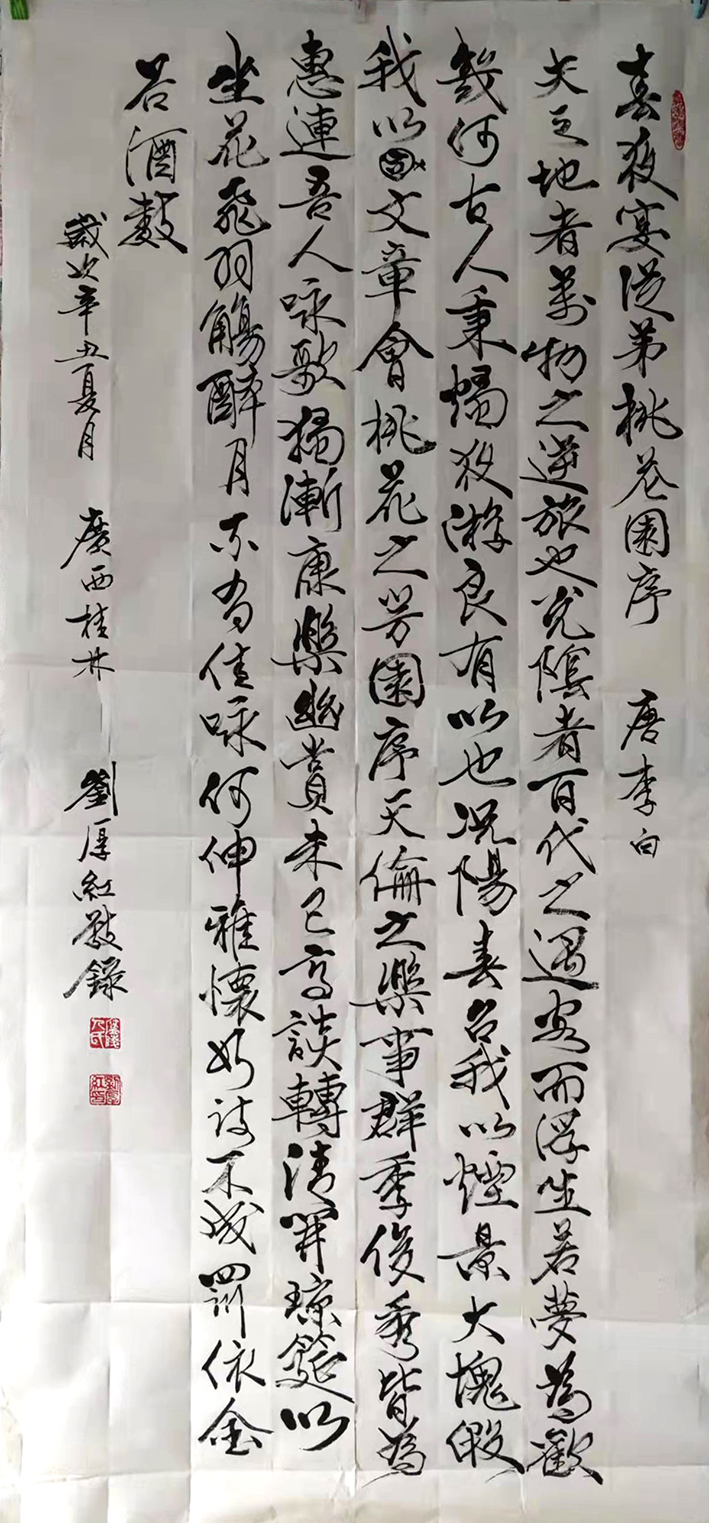 春夜宴從弟桃花園序 唐李白
夫天地者萬物之逆旅也光陰者百代之過客而浮生若夢為歡
幾何古人秉燭夜游良有以也況陽春召我以煙景大塊假
我以文章會桃花之芳園序天倫之樂事群季俊秀皆為
惠連吾人咏歌獨漸康樂幽賞未已高談轉清開瓊筵以
坐花飛羽觴醉月不有佳咏何伸雅懷如詩不成罰依金
谷酒數
歲次辛丑夏月 廣西桂林 劉厚紅敬錄